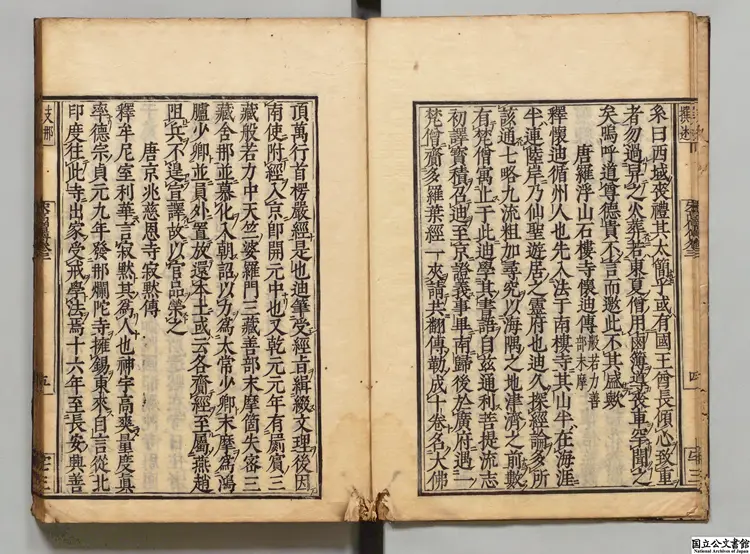 撰述
系曰西域喪禮其太簡乎或有國王酋長傾心致重
者勿過舁之火葬若東夏僧用鹵簿導喪車罕聞之
矣嗚呼道尊德貴不言而邀此不其盛歟
唐羅浮山石樓寺懷迪傳 般若力善
部末摩
釋懷迪循州人也先入法于南樓寺其山半在海涯
半連陸岸乃仙聖遊居之靈府也迪久探經論多所
該通七略九流粗加尋究以海隅之地津濟之前數
有梵僧寓止于此迪學其書語自茲通利菩提流志
初譯寶積召迪至京證義事畢南歸後於廣府遇一
梵僧齎多羅葉經一夾請共翻傳勒成十卷名大佛
四
頂萬行首楞嚴經是也迪筆受經旨緝綴文理後因
南使附經入京即開元中也又乾元元年有罽賓三
藏般若力中天竺婆羅門三藏善部末摩箇失密三
藏舍那並慕化入朝詔以力為太常少卿末摩為鴻
臚少卿並員外置放還本土或云各齎經至屬燕趙
阻兵不遑宣譯故以官品榮之
唐京兆慈恩寺寂默傳
釋牟尼室利華言寂默其為人也神宇高爽量度真
率德宗貞元九年發那爛陀寺擁錫東來自言從北
印度往此寺出家受戒學法焉十六年至長安興善
支那
五
国立公文書館
National Archives of Japan